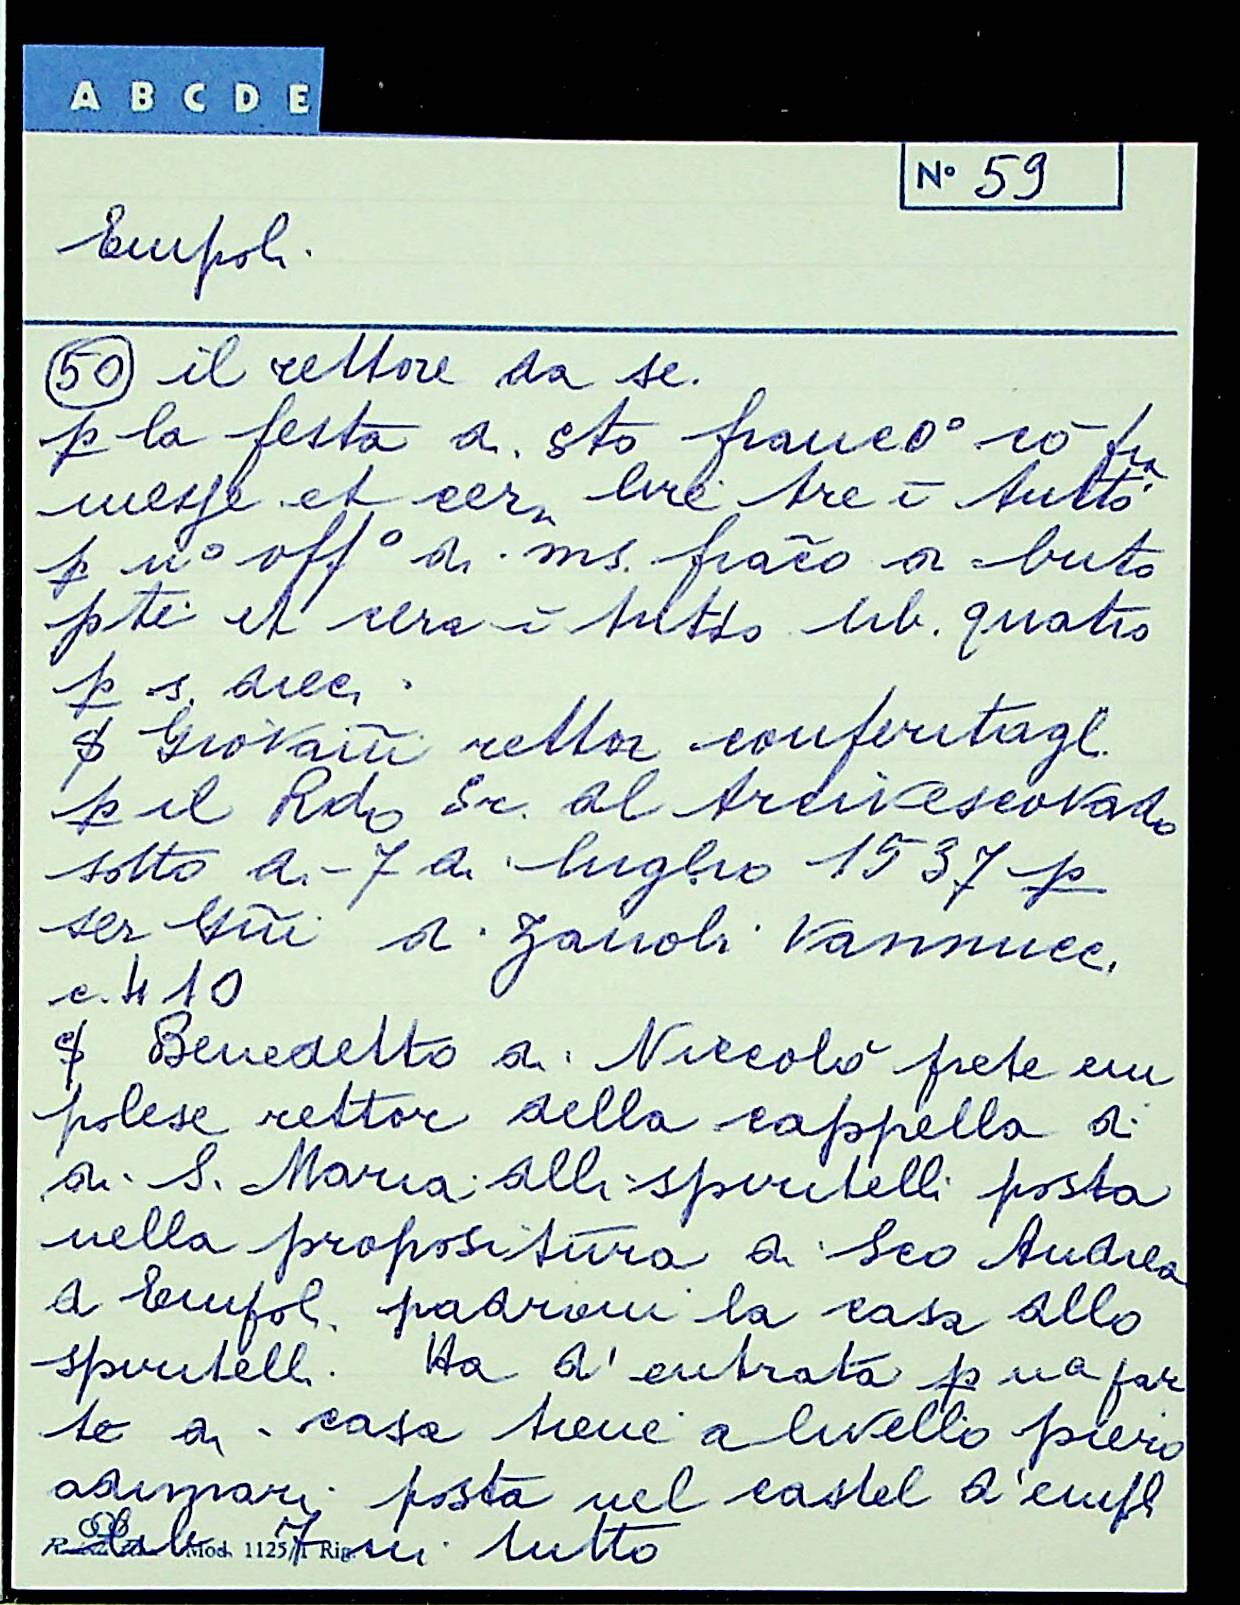 A B C D E
N° 59
Empoli.
50 il rettore da se.
p la festa di sto franco° cō fra
messe et cera lire tre ī tutto
p n° off° di ms. frāco di buto
pti et cera ī tutto lib. quatro
p s. dieci.
Giovañi rettor conferitagli
p il Rdo Sr. al Arcivescovado
sotto di - 7 di luglio 1537 p
ser Gñi di Zanobi Vannucci
c. 410
Benedetto di Niccolò prete em
polese rettor della cappella di
di S. Maria alli spiritelli posta
nella propositura di Sco Andrea
d Empoli padroni la casa allo
spiritelli. Ha d'entrata p na par
te di casa tiene a livello piero
adimari posta nel castel d'empli
lib 7 in tutto
Mod. 1125/1 Rig.